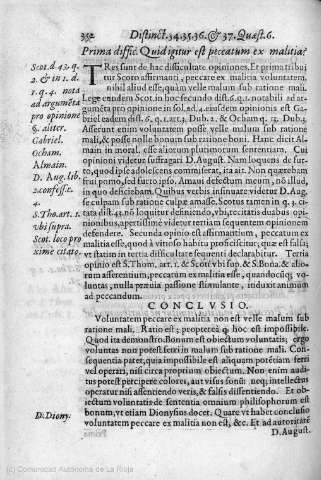 352 Distinct. 34. 35. 36. & 37. Quæst. 6.
Prima diffic. Quid igitur est peccatum ex malitia?
Scot. d. 43. q.
2. & in 1. d.
1. q. 4. nota
ad argumēta
pro opinione
§. aliter.
Gabriel.
Ocham.
Almain.
D. Aug. lib.
2. confess. c.
4.
S. Tho. art. 1.
vbi supra.
Scot. loco pro
xime citato.
TRes sunt de hac difficultate opiniones. Et prima tribui
tur Scoto affirmanti, peccare ex malitia voluntatem,
nihil aliud esse, quàm velle malum sub ratione mali.
Lege eundem Scot. in hoc secundo dist. 6. q. 1. notabili ad ar-
gumēta pro opinione in sol. ad. 4. eiusdem opinionis est Ga-
briel eadem dist. 6. q. 1. art. 3. Dub. 2. & Ocham q. 13. Dub. 3.
Asserunt enim voluntatem posse velle malum sub ratione
mali, & posse nolle bonum sub ratione boni. Hanc dicit Al-
main in moral. esse aliorum plurimorum sententiam. Cui
opinioni videtur suffragari D. August. Nam loquens de fur-
to, quod ipse adolescens commiserat, ita ait. Non quærebam
frui pomo, sed furto ipso. Amaui defectum meum, nō illud,
in quo deficiebam. Quibus verbis insinuare videtur D. Au-
se culpam sub ratione culpæ amasse. Scotus tamen in q. 2. ci
tata dist. 43. nō loquitur definiendo, vbi, recitatis duabus opi-
nionibus, apertissimè videtur tertiam sequentem opinionem
defendere. Secunda opinio est affirmantium, peccatum ex
malitia esse, quod à vitioso habitu proficiscitur; quæ est falsa;
vt statim in tertia difficultate sequenti declarabitur. Tertia
opinio est S. Thom. art. 1. & Scoti vbi sup. & S. Bona. & alio-
rum assentientium, peccatum ex malitia esse, quandocūq; vo-
luntas, nulla præuia passione stimulante, induxit animum
ad peccandum.
CONCLVSIO.
Voluntatem peccare ex malitia non est velle malum sub
ratione mali. Ratio est; propterea q̄ hoc est impossibile.
Quod ita demonstro. Bonum est obiectum voluntatis; ergo
voluntas non potest ferri in malum sub ratione mali. Con-
sequentia patet, quia impossibile est aliquam potētiam ferri
vel operari, nisi circa proprium obiectum. Non enim audi-
tus potest percipere colores, aut visus sonū: neq; intellectus
operatur nisi assentiendo veris, & falsis dissentiendo. Et ob-
iectum voluntatis de sententia omnium philosophorum est
D. Diony. bonum, vt etiam Dionysius docet. Quare vt habet conclusio
voluntatem peccare ex malitia non est, &c. Et ad autoritatē
D. August.
(c) Comunidad Autónoma de La Rioja